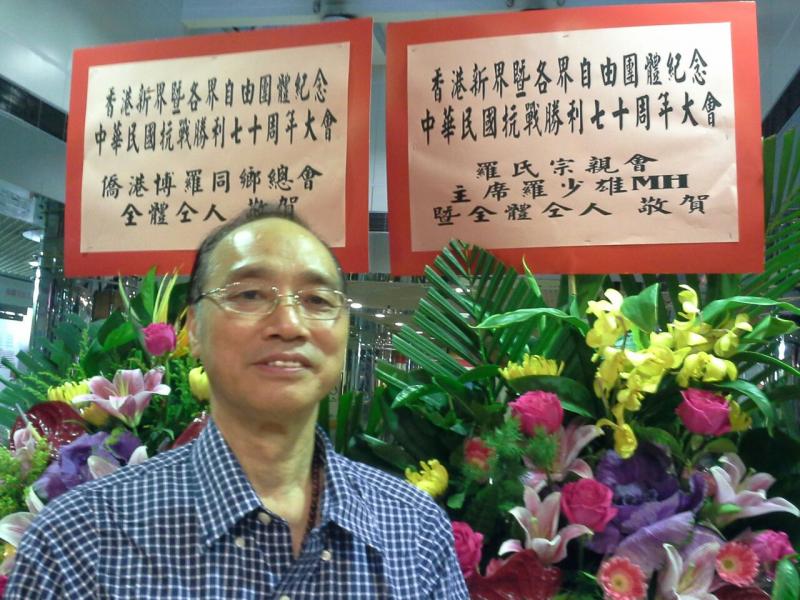 香港新界暨各界自由團體紀念
中華民國抗戰勝利七十周年大會
僑港博羅同鄉總會
全體仝人 敬賀
香港新界暨各界自由團體紀念
中華民國抗戰勝利七十周年大會
羅氏宗親會
主席羅少雄MH
暨全體仝人 敬賀